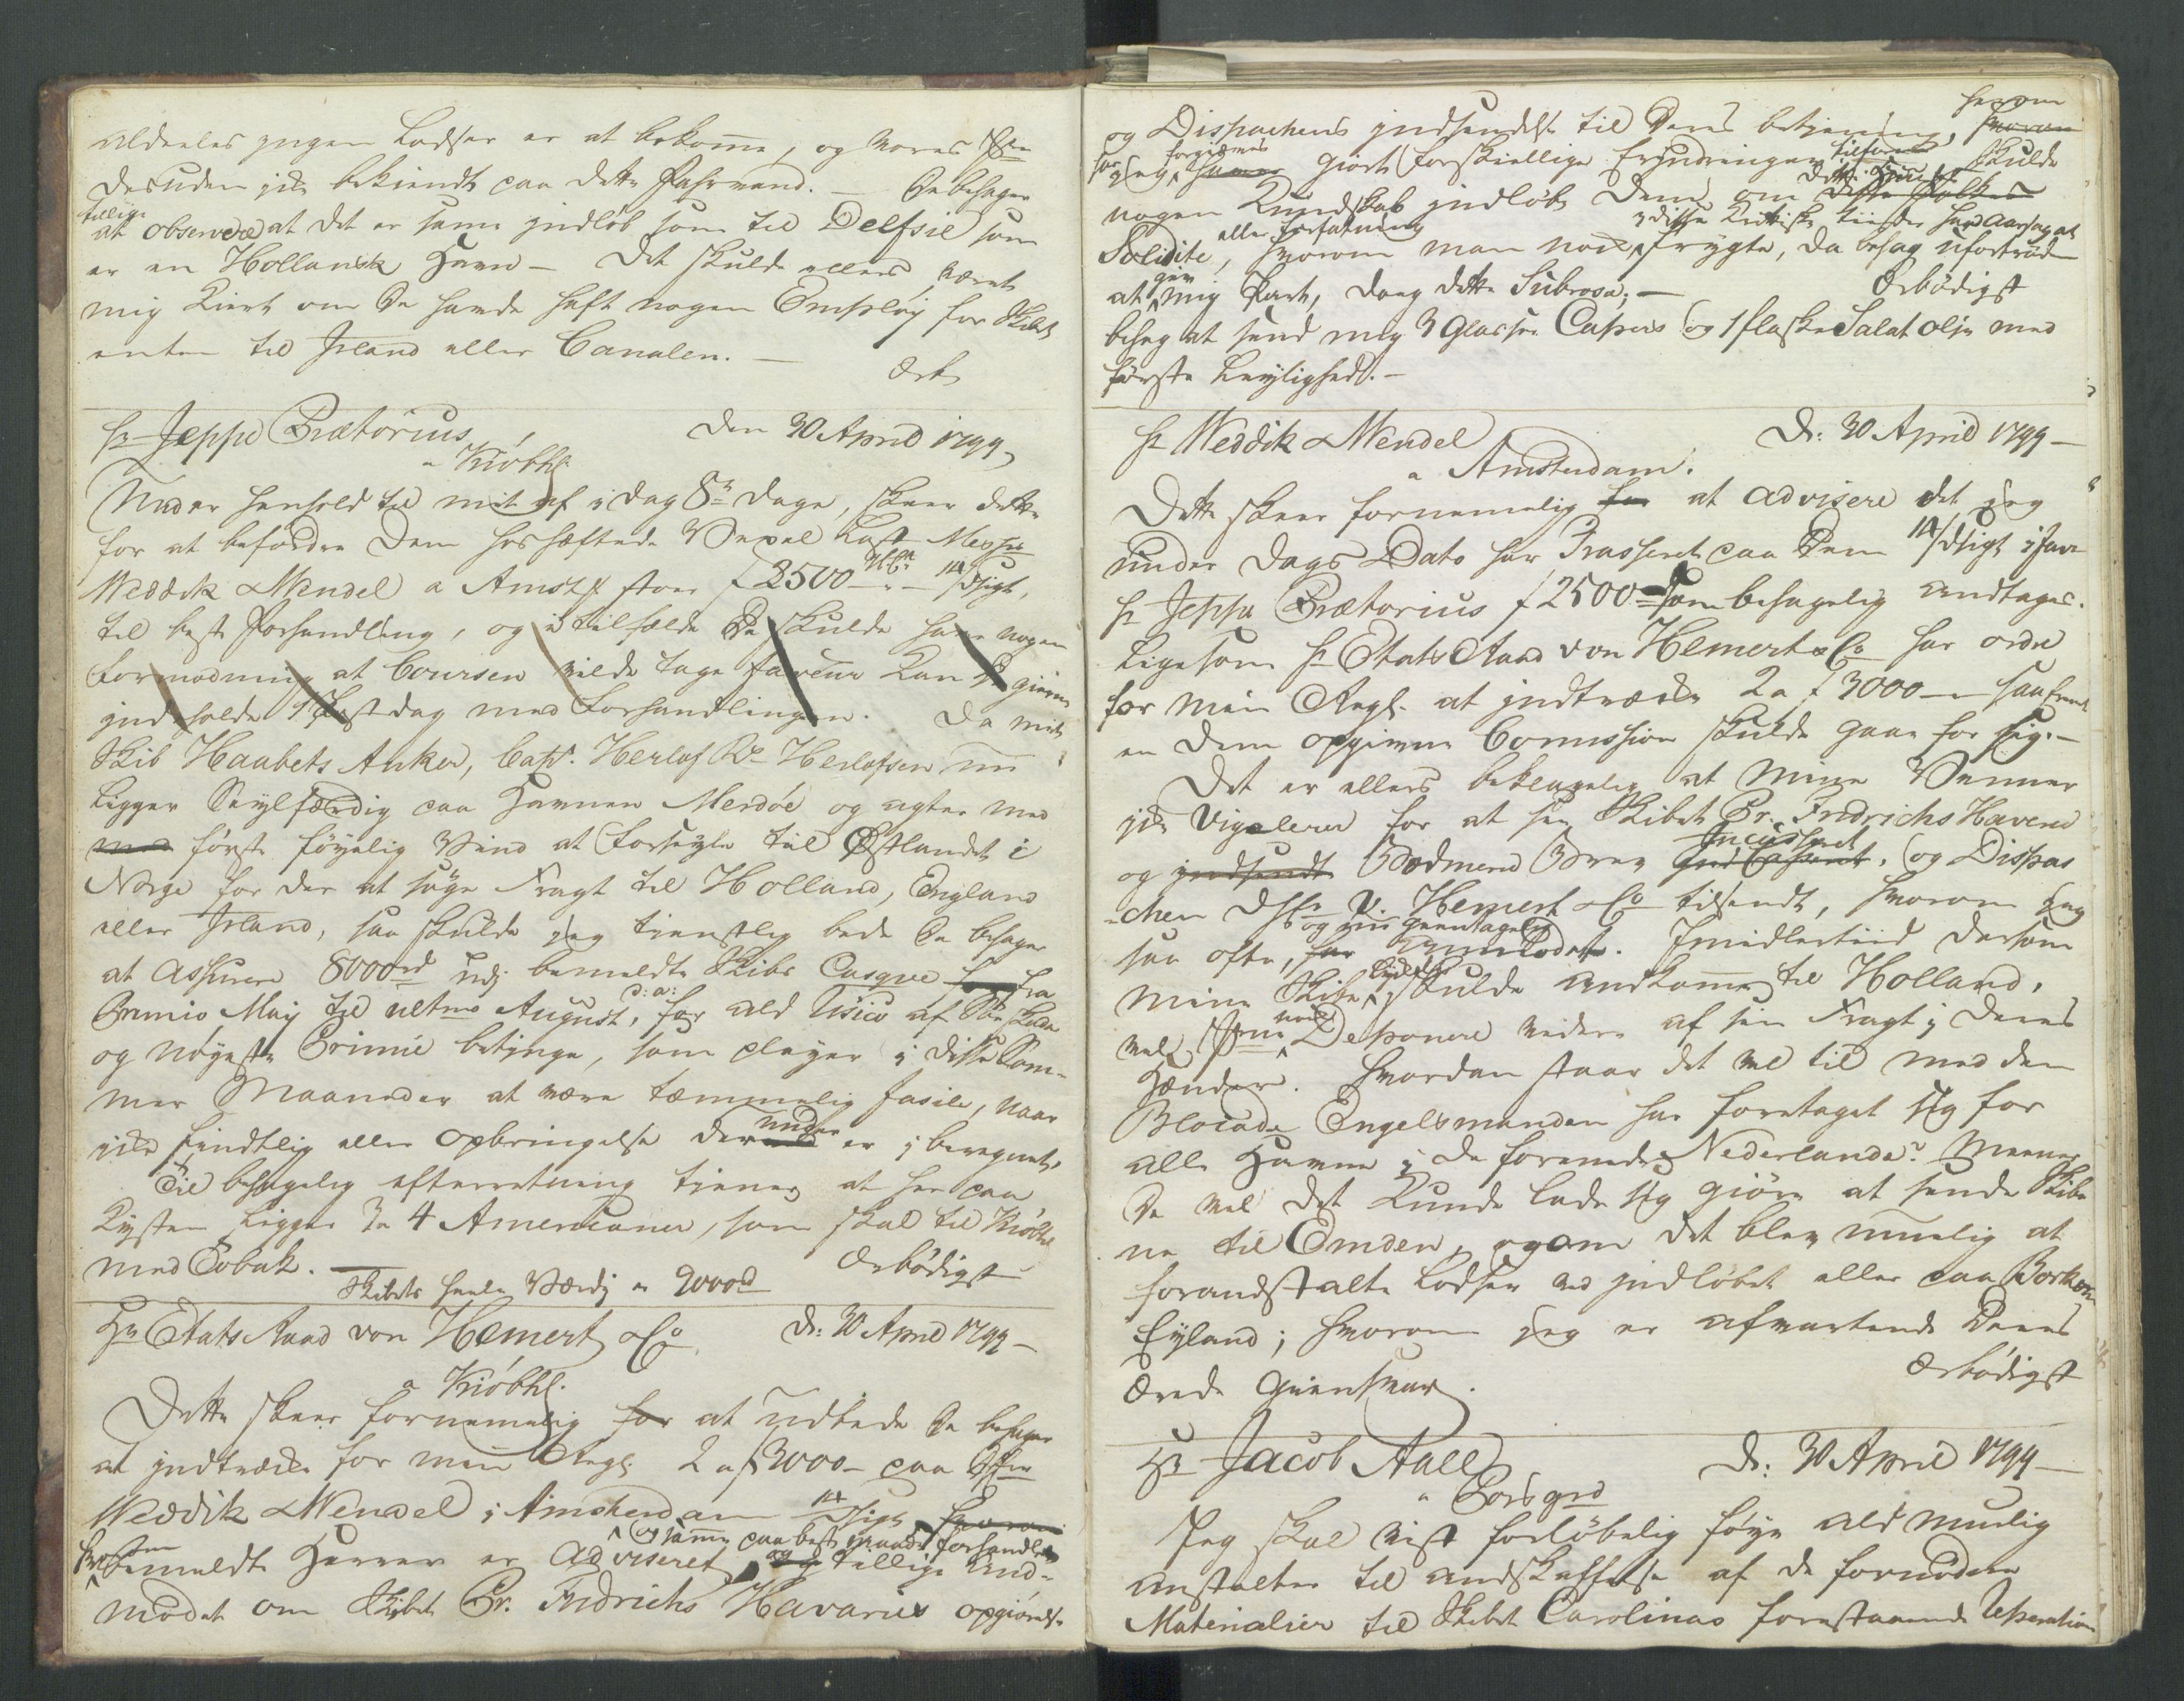 aldeeles ingen Lodser er at bekomme, og vores
desuden icke bekiendt paa dette Fahrvand. — De behager
tillige
at observere at det er samme indløb som til Delfsiel som
er en Hollansk Havn — Det skulde ellers været
mig kiert om De havde haft nogen Emploÿ for Skibet
enten til Irland eller Canalen. —
Ærb
Hr Jeppe Prætorius
a Kiøbh.
den 30 April 1799
Under henhold til mit af i dag 8te Dage, skeer dette
for at befordre Dem hoshæftede Vexel Last Messrs
Weddik & Wendel a Amst. stor ƒ 2500 — 14/dsigt,
til beste Forhandling, og i tilfælde De skulde have nogen
formodning at Coursen vilde tage faveur kan De gierne
indeholde 1 Postdag med Forhandlingen. Da mit
Skib Haabets Anker, Capt. Herlof Herlofsen nu
ligger Seylfærdig paa Havnen Merdøe og agter med
med første føyelig Vind at forseyle til Østlandet i
Norge for der at søge Fragt til Holland, England
eller Irland, saa skulde jeg tienstlig bede De behager
at assurere 8000rd udj bemeldte Skibs Casque for fra
Primio Maÿ til ultmo August, d: a: for ald Risico af Søe skade
og nøyeste Primie betinge, som pleyer i disse Som-
mer Maaneder at være temmelig facile, naar
icke fiendtlig eller opbringelse derunder er iberegnet.
Til behagelig efterretning tiener at her paa
Kysten ligger 3 a 4 Americaner, som skal til Kiøbh
med Tobak. —
Ærbødigst
Skibets heele Værdj er 9000rd
Hr Etats Raad von Hemert & Co
a Kiøbh.
D: 30 April 1799 —
Dette skeer fornemelig for at udbede De behager
at indtrække for min Regl. 2 a ƒ 3000 — paa Hrr
Weddik & Wendel i Amsterdam 14/dsigt hvorom
og samme paa beste maade forhandle
hvorom bemeldte Herrer er Adviseret og tillige And-
modet om Skibet Pr. Fridrichs Havaries opgiørelse
og Dispachens indsendelse til Deres betiening, hvorom
herom
har jeg forgiæves giort forskiellige Erindringer tilforn Skulde
nogen Kundskab indløbe Dem om disse Folkes dette Huuses
Solidite, eller forfatning hvorom man nok i disse Kritiske tiider har Aarsag at frygte, da behag ufortrøden
at give mig Part, dog dette Subrosa; —
Ærbødigst
behag at send mig 3 Glasser Capers og 1 flaske Salat olje med
første Leylighed. —
Hr Weddik & Wendel
a Amsterdam.
D: 30 April 1799 —
Dette skeer fornemelig for at advisere det jeg
under Dags Dato har Trasseret paa Dem 14/dsigt i faveur
Hr Jeppe Prætorius ƒ 2500 som behagelig andtages.
Ligesom Hr Etats Raad von Hemert & Co har ordre
for min Regl. at indtrække 2 a ƒ 3000 — saafremt
en dem opgiven Comission skulde gaae for sig. —
Det er ellers beklagelig at mine Venner
icke vigelerer for at see Skibet Pr. Fridrichs Haverie
og indsendt Bodmerie Brev Indcasseret Incasseret, og Dispac
chen Hr v. Hemert & Co tilsendt, hvorom jeg
saa ofte, og nu gientagelig har anmodet. Imidlertiid dersom
mine Skibe lykkelig skulde ankomme til Holland,
vel icke nogen Deponere videre af sin Fragt i Deres
Hænder. Hvordan staar det vel til med den
Blocade Engelsmanden har foretaget sig for
alle Havne i De forenede Nederlande? Meener
De vel det kunde lade sig giøre at sende Skibe
ne til Emden, og om det blev muelig at
forandstalte Lodser ved indløbet eller paa Borkum
Eyland; hvorom jeg er afvartende Deres
Ærede Giensvar.
Ærbødigst
Hr Jacob Aall
a Porsgrd
D: 30 April 1799 —
Jeg skal vist forløbelig føye ald muelig
anstalter til andskaffelse af de fornødne
Materialier til Skibet Carolinas forestaaende Reparation